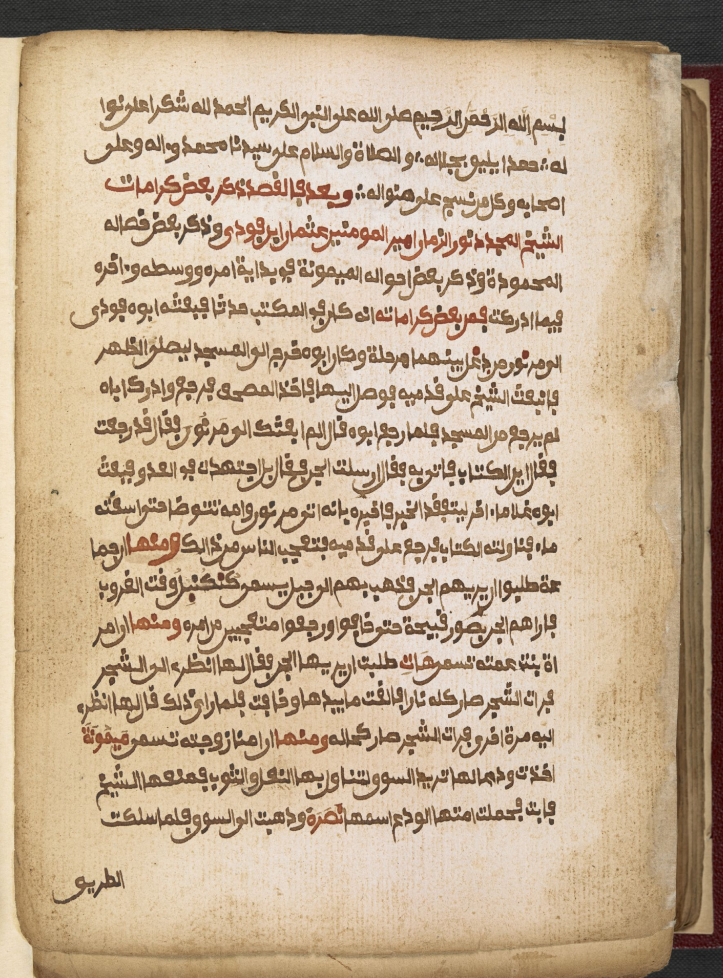 بسم الله الرحمن الرحيم صلى الله على النبي الكريم الحمد لله شكرا على نوا
له حمدا يليق بجلاله و الصلاة والسلام على سيدنا محمد واله وعلى
اصحابه وكل من نسج على منواله وبعد فالقصد ذكر بعض كرامات
الشيخ المجدد نور الزمان امير المومنين عثمان ابن فودي وذكر بعض خصاله
المحمودة وذكر بعض احواله الميمونة في بداية امره ووسطه واخره
فيما ادركت فمن بعض كراماته انه كان في المكتب حدثا فبعثه ابوه فودي
الى مرنور من دغل بينهما مرحلة وكان ابوه خرج الى المسجد ليصلي الظهر
فانبعث الشيخ على قدميه فوصل اليها فاخذ المصحف فرجع وادرك اباه
لم يرجع من المسجد فلما رجع ابوه قال الم ابعثك الى مرنور فقال قد رجعت
فقال اين الكتاب فاتى به فقال ارسلت الجن فقال بل اجتهدت في العدو فبعث
ابوه غلاما اخر ليتفقد الخبر فاخبره بانه اتى مرنور وامه تتوضا حتى اسقته
ماء فناولته الكتاب فرجع على قدميه فتعجب الناس من ذالك ومنها ان جما
عة طلبوا ان يريهم الجن فذهب بهم الى جبل يسمى وقت الغروب
فاراهم الجن بصور قبيحة حتى خافوا ورجعوا متعجبين من امره ومنها ان امر
اة بنت عمته تسمى هات طلبت ان يريها الجن فقال لها انظرء الى الشجر
فرات الشجر صار كله نارا فالقت ما بيدها وخافت فلما راى ذلك قال لها انظرء
اليه مرة اخرى فرات الشجر صار كحاله ومنها ان امنا زوجته تسمى ميمونة
اخذت ودعا لها تريد السوق لتشاور بها النعل والثوب فمنعها الشيخ
فابت فحملت امتها الودع اسمها نصرة وذهبت الى السوق فلما سلكت
الطريق